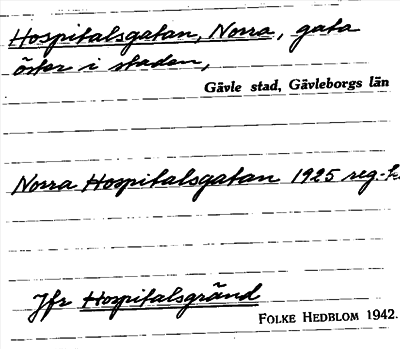 Hospitalsgatan, Norra, gata
öster i staden,
Gävle stad, Gävleborgs län
Norra Hospitalsgatan 1925 reg.-k.
Jfr Hospitalsgränd
FOLKE HEDBLOM 1942.